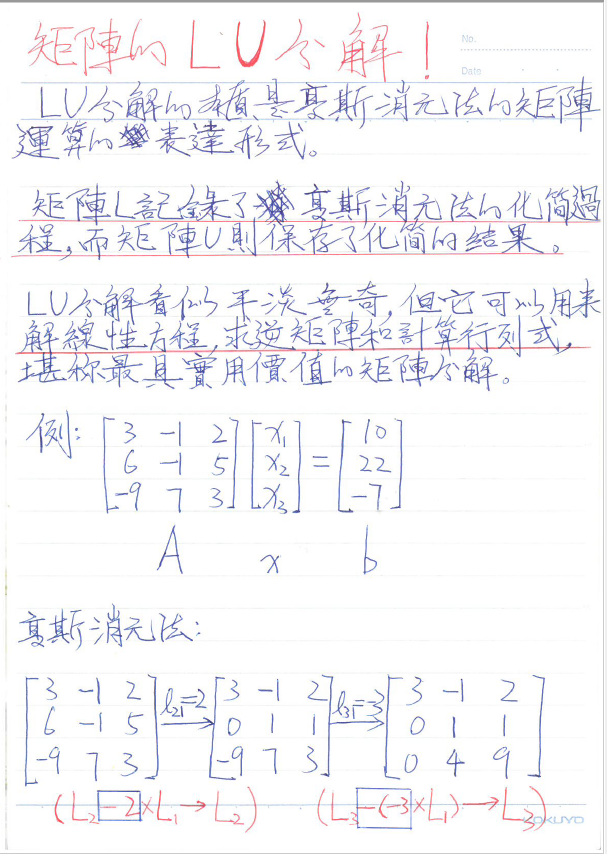 矩陣的LU分解!
No.
Date
LU分解的本質是高斯消元法的矩陣
運算的表達形式。
矩陣L記錄了高斯消元法的化簡過
程,而矩陣U則保存了化簡的結果。
LU分解看似平淡無奇,但它可以用來
解線性方程,求逆矩陣和計算行列式,
堪称最具實用價值的矩陣分解。
例: [3 -1 2; 6 -1 5; -9 7 3] [x₁; x₂; x₃] = [10; 22; -7]
A x b
高斯消元法:
[3 -1 2; 6 -1 5; -9 7 3] l₂₁=2 → [3 -1 2; 0 1 1; -9 7 3] l₃₁=-3 → [3 -1 2; 0 1 1; 0 4 9]
(L₂ -2×L₁→L₂) (L₃ -(-3×L₁)→L₃)
KOKUYO